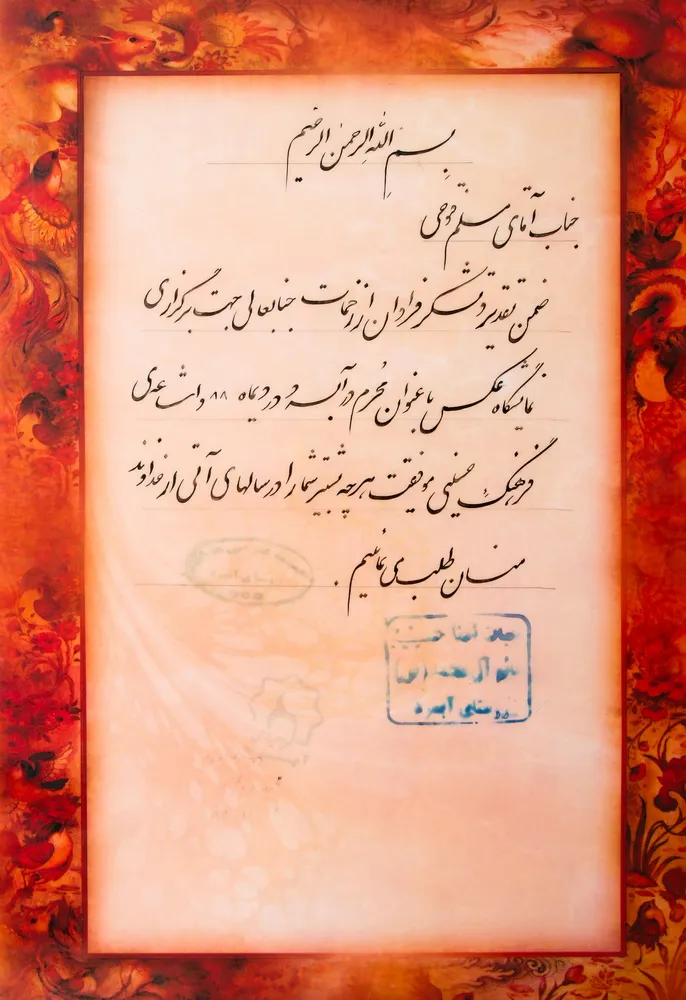 بسم الله الرحمن الرحیم
جناب آقای مسلم فتوحی
ضمن تقدیر و تشکر فراوان از زحمات جنابعالی جهت برگزاری
نمایشگاه عکس با عنوان مُحرم در آبسرد در دیماه ۸۸ و اشاعه‌ی
فرهنگِ حسینی موفقیت هرچه بیشتر شما را در سالهای آتی از خداوند
منان طلب می نمائیم.
روستای آبسرد